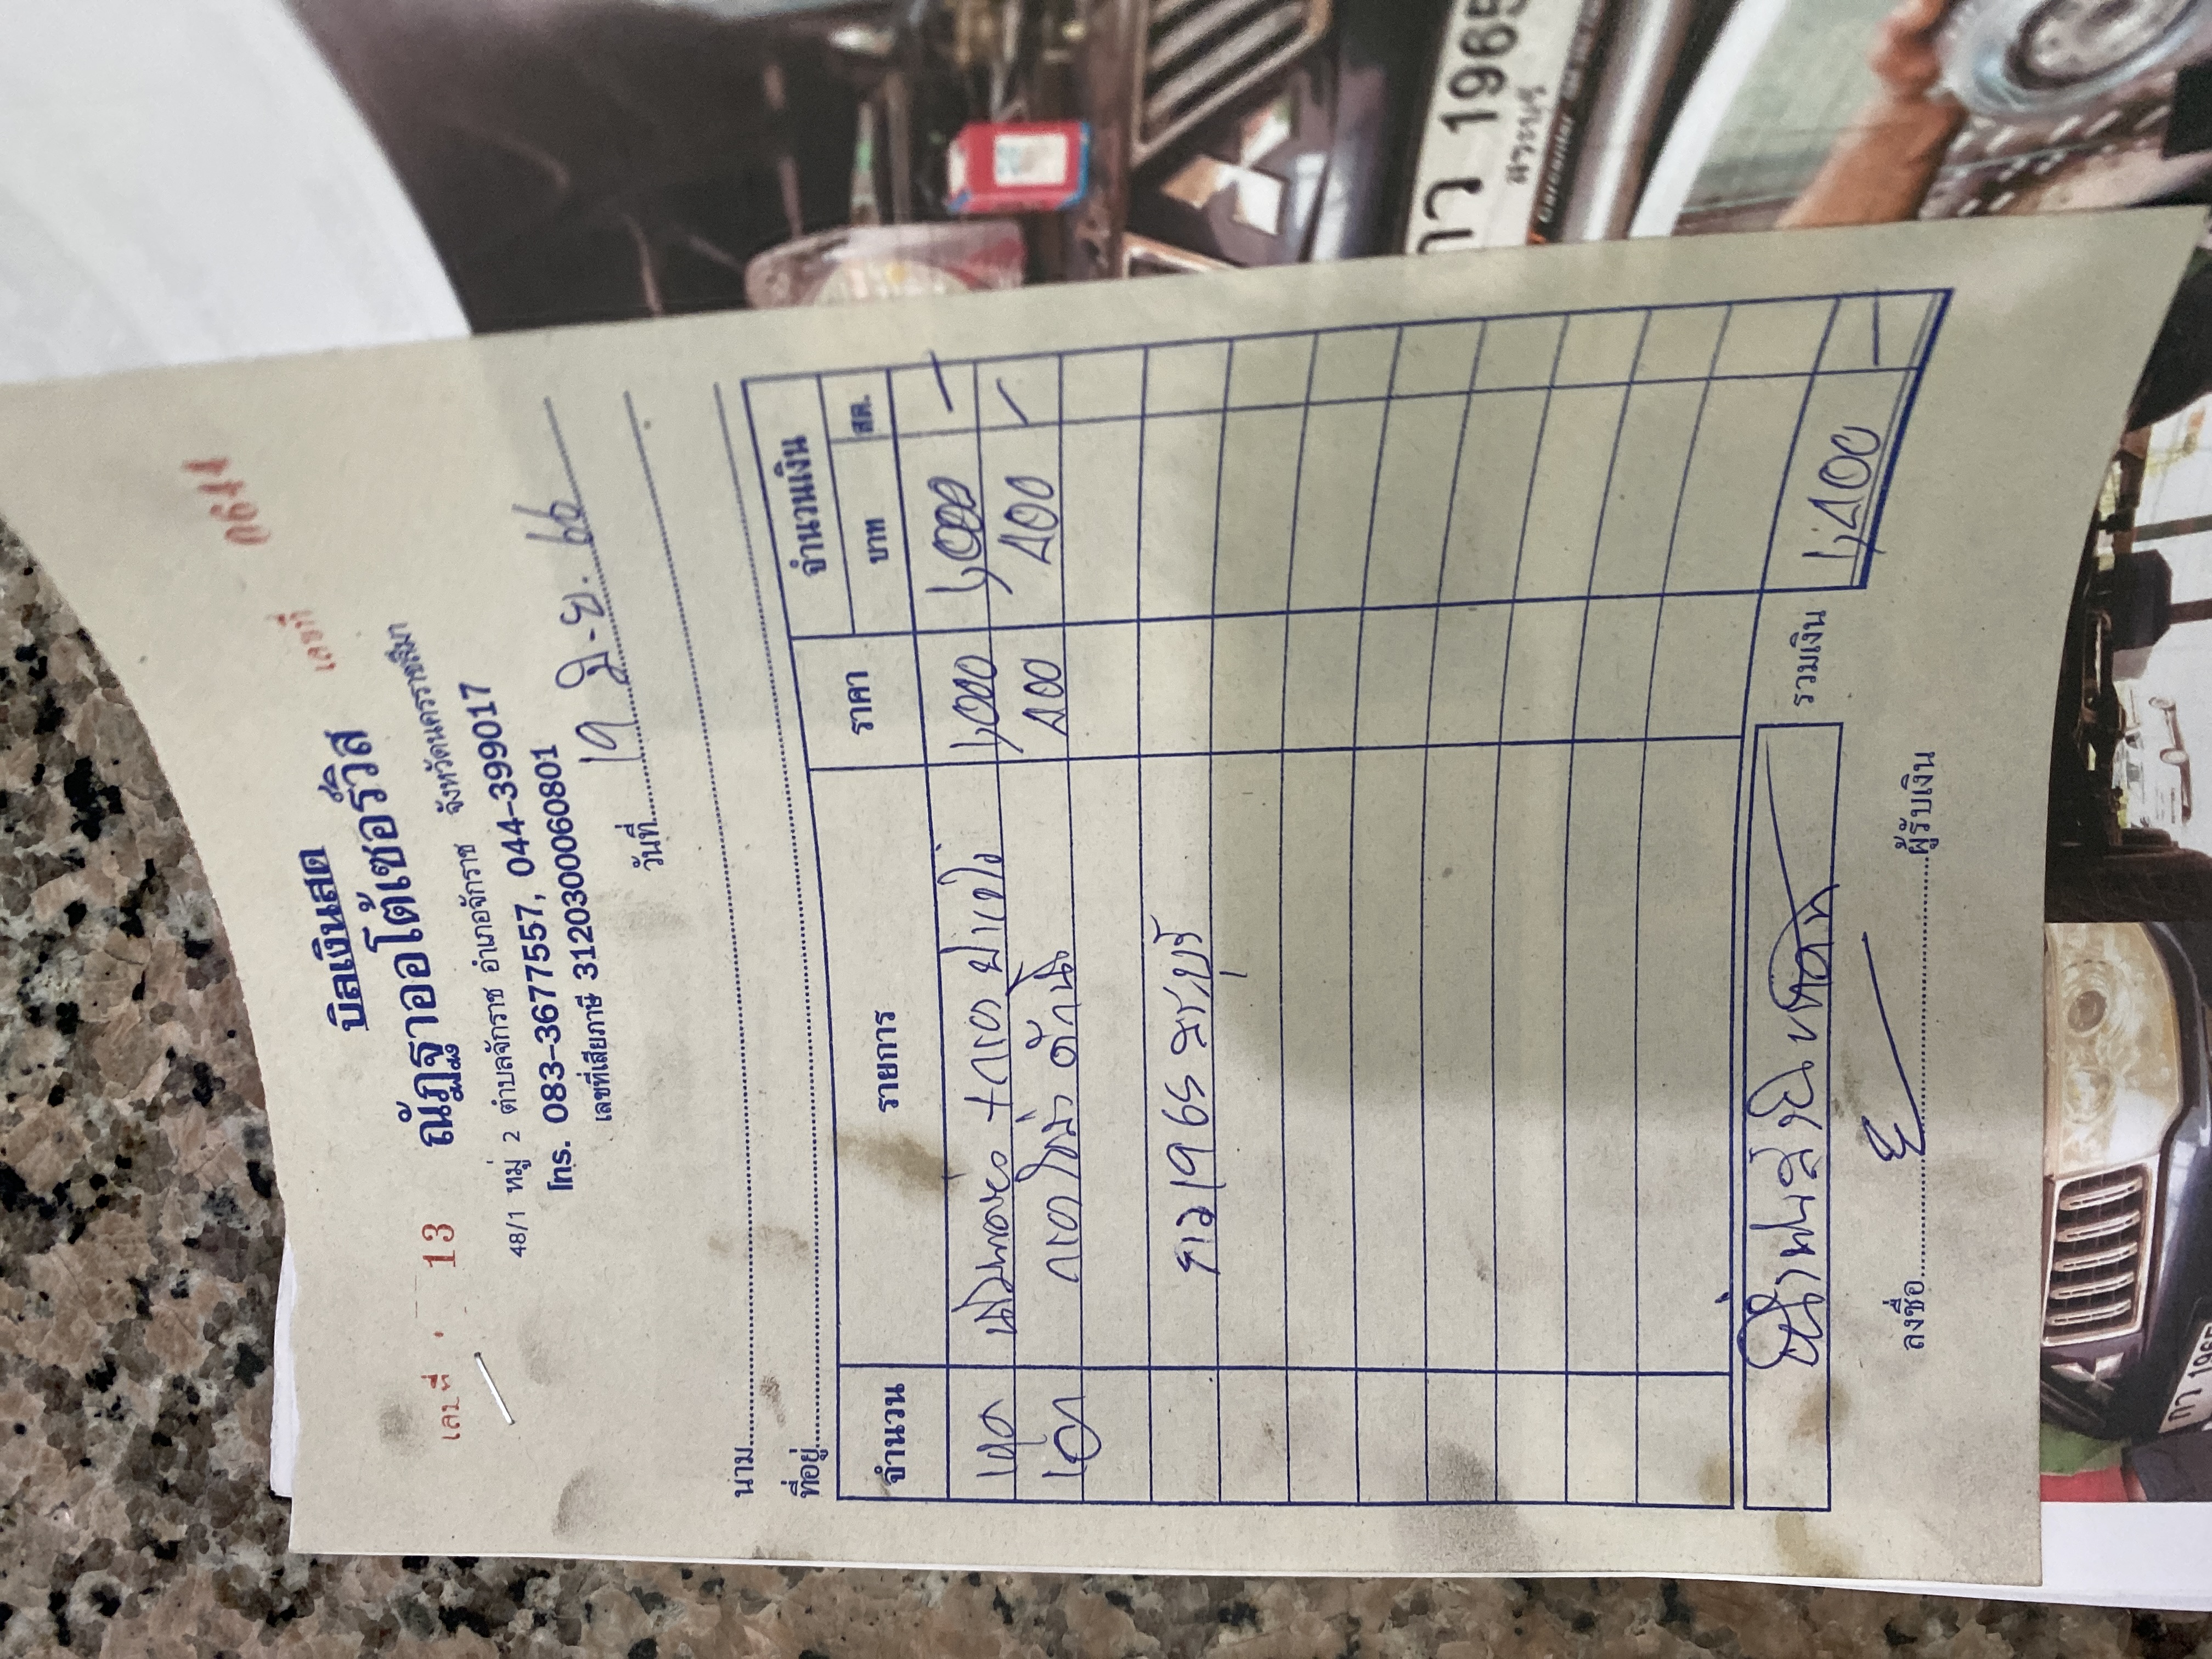 บิลเงินสด
เลขที่ 13
ณัฏฐาออโต้เซอร์วิส
เลขที่ 0644
48/1 หมู่ 2 ตำบลจักราช อำเภอจักราช จังหวัดนครราชสีมา
โทร. 083-3677557, 044-399017
เลขที่เสียภาษี 3120300060801
วันที่ 19 มิ.ย. 66
นาม
ที่อยู่
จำนวน รายการ ราคา จำนวนเงิน
บาท สต.
1,000 1,000 -
400 400 -
กว 1965 สระบุรี
รวมเงิน 1,400 -
ลงชื่อ ผู้รับเงิน
กว 1965
สระบุรี
กว 196